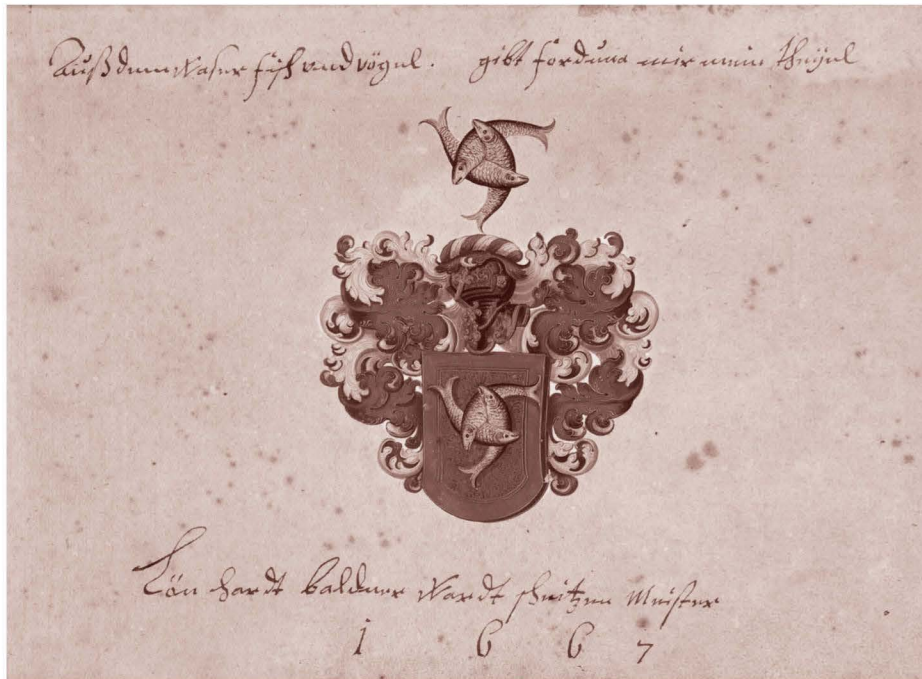 Auß dem Waser fysch und vögel. gibt forduna mir mein theyel
Lön hardt baldner Wardt schitzen Meister
1 6 6 7